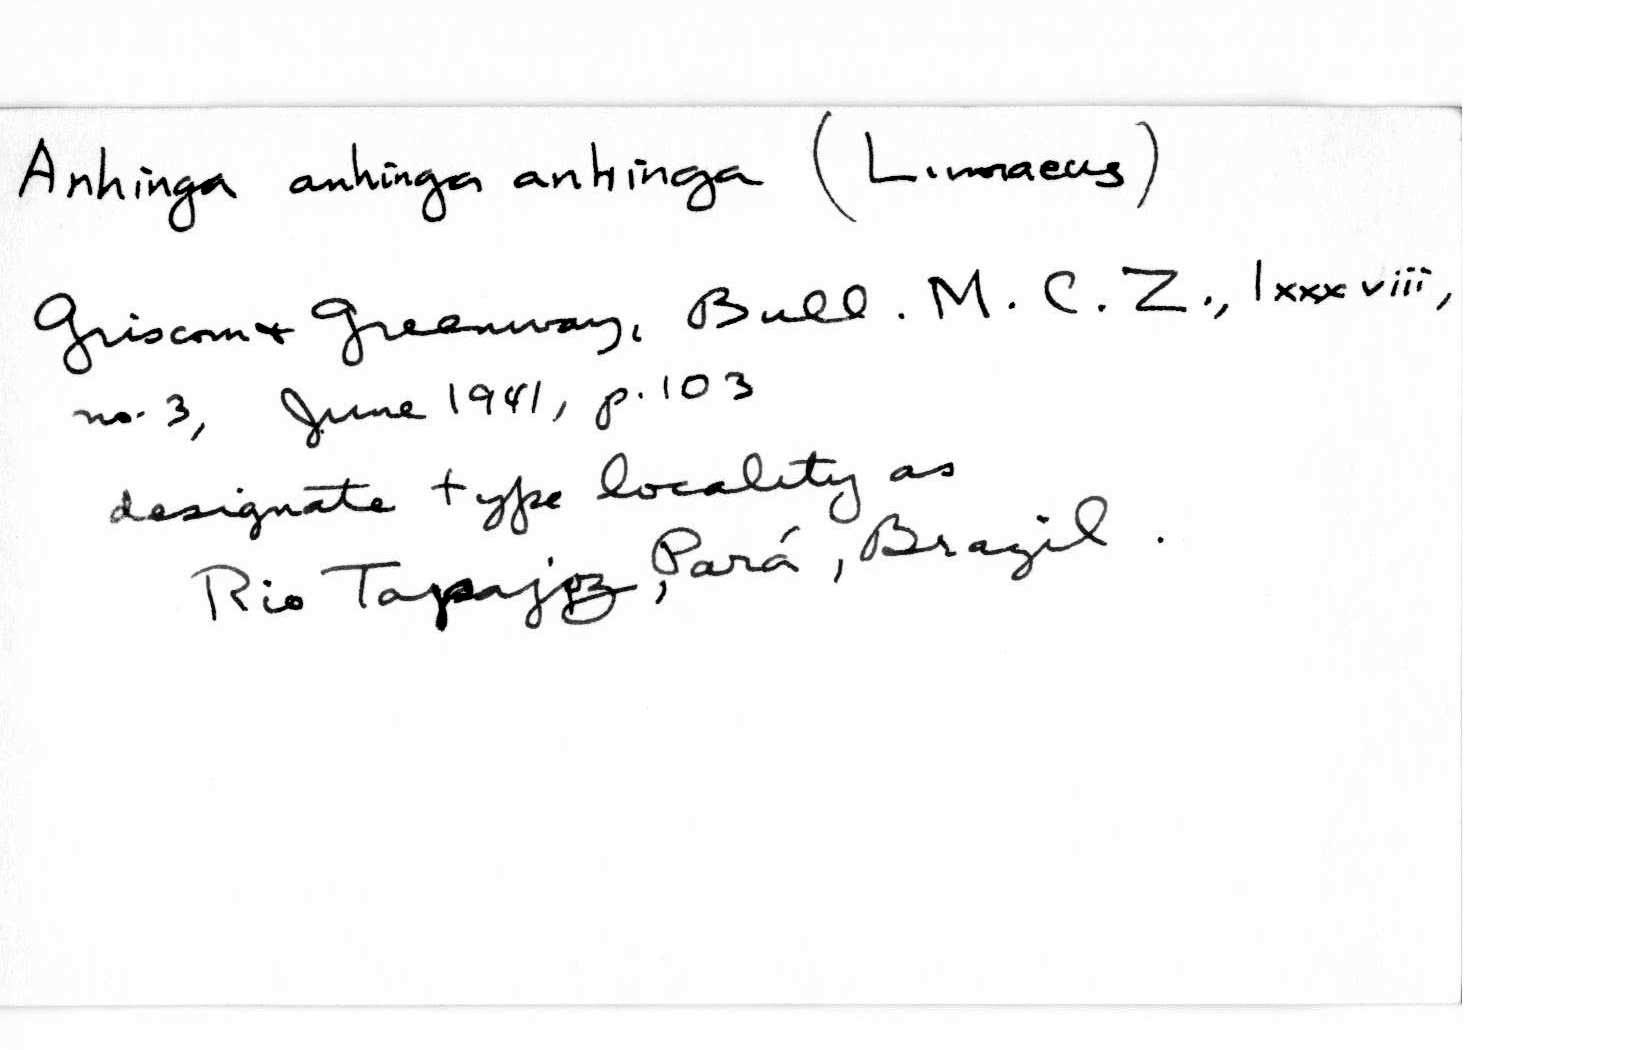 Anhinga anhinga anhinga (Linnaeus)
Griscom & Greenway, Bull. M. C. Z., lxxxviii,
no. 3, June 1941, p. 103
designate type locality as
Rio Tapajoz, Pará, Brazil.